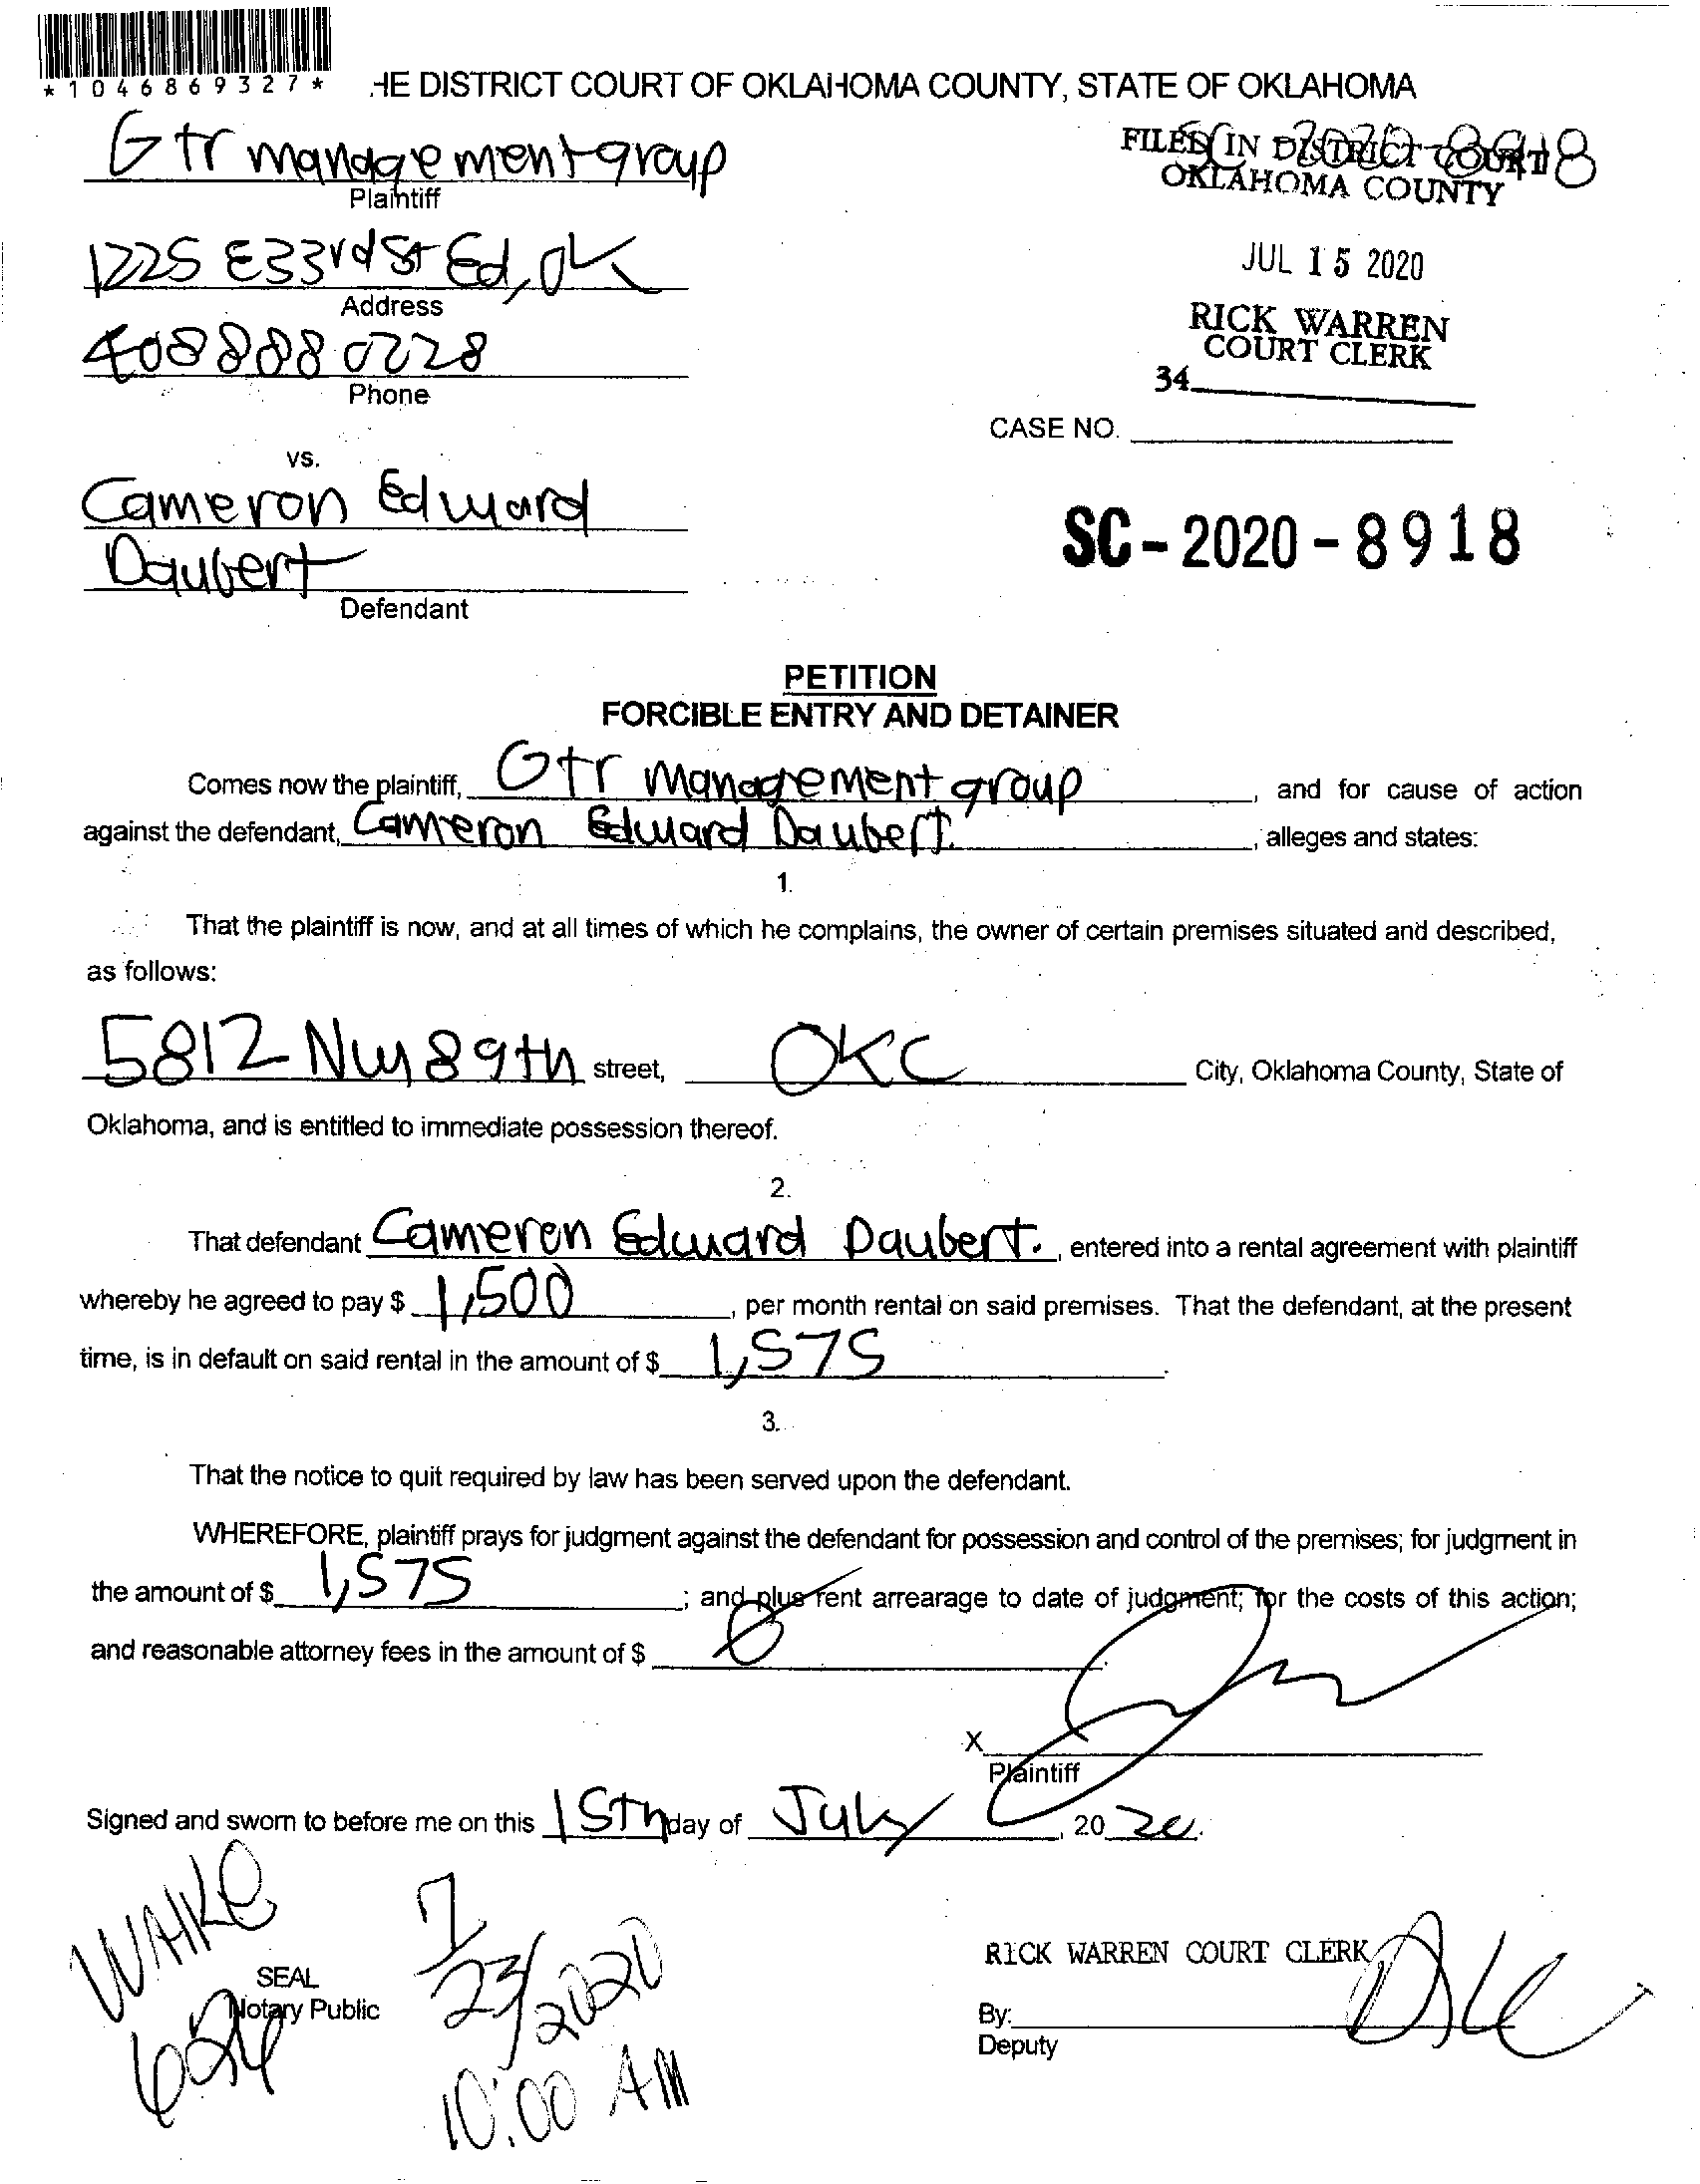 *1046869327*
HE DISTRICT COURT OF OKLAHOMA COUNTY, STATE OF OKLAHOMA
Gtr management group
Plaintiff
SC 2020-8918
FILED IN DISTRICT COURT
OKLAHOMA COUNTY
1225 E 33rd St Ed, OK
Address
JUL 15 2020
408 888 0228
Phone
RICK WARREN
COURT CLERK
34
CASE NO.
vs.
Cameron Edward
Daubert
Defendant
SC-2020-8918
PETITION
FORCIBLE ENTRY AND DETAINER
Comes now the plaintiff, Gtr management group, and for cause of action
against the defendant, Cameron Edward Daubert., alleges and states:
1.
That the plaintiff is now, and at all times of which he complains, the owner of certain premises situated and described,
as follows:
5812 NW 89th street, OKC City, Oklahoma County, State of
Oklahoma, and is entitled to immediate possession thereof.
2.
That defendant Cameron Edward Daubert., entered into a rental agreement with plaintiff
whereby he agreed to pay $ 1,500, per month rental on said premises. That the defendant, at the present
time, is in default on said rental in the amount of $ 1,575.
3.
That the notice to quit required by law has been served upon the defendant.
WHEREFORE, plaintiff prays for judgment against the defendant for possession and control of the premises; for judgment in
the amount of $ 1,575; and plus rent arrearage to date of judgment; for the costs of this action;
and reasonable attorney fees in the amount of $ 0
X
Plaintiff
Signed and sworn to before me on this 15th day of July, 20 20.
SEAL
Notary Public
624
7/23/2020
10:00 AM
RICK WARREN COURT CLERK
By:
Deputy